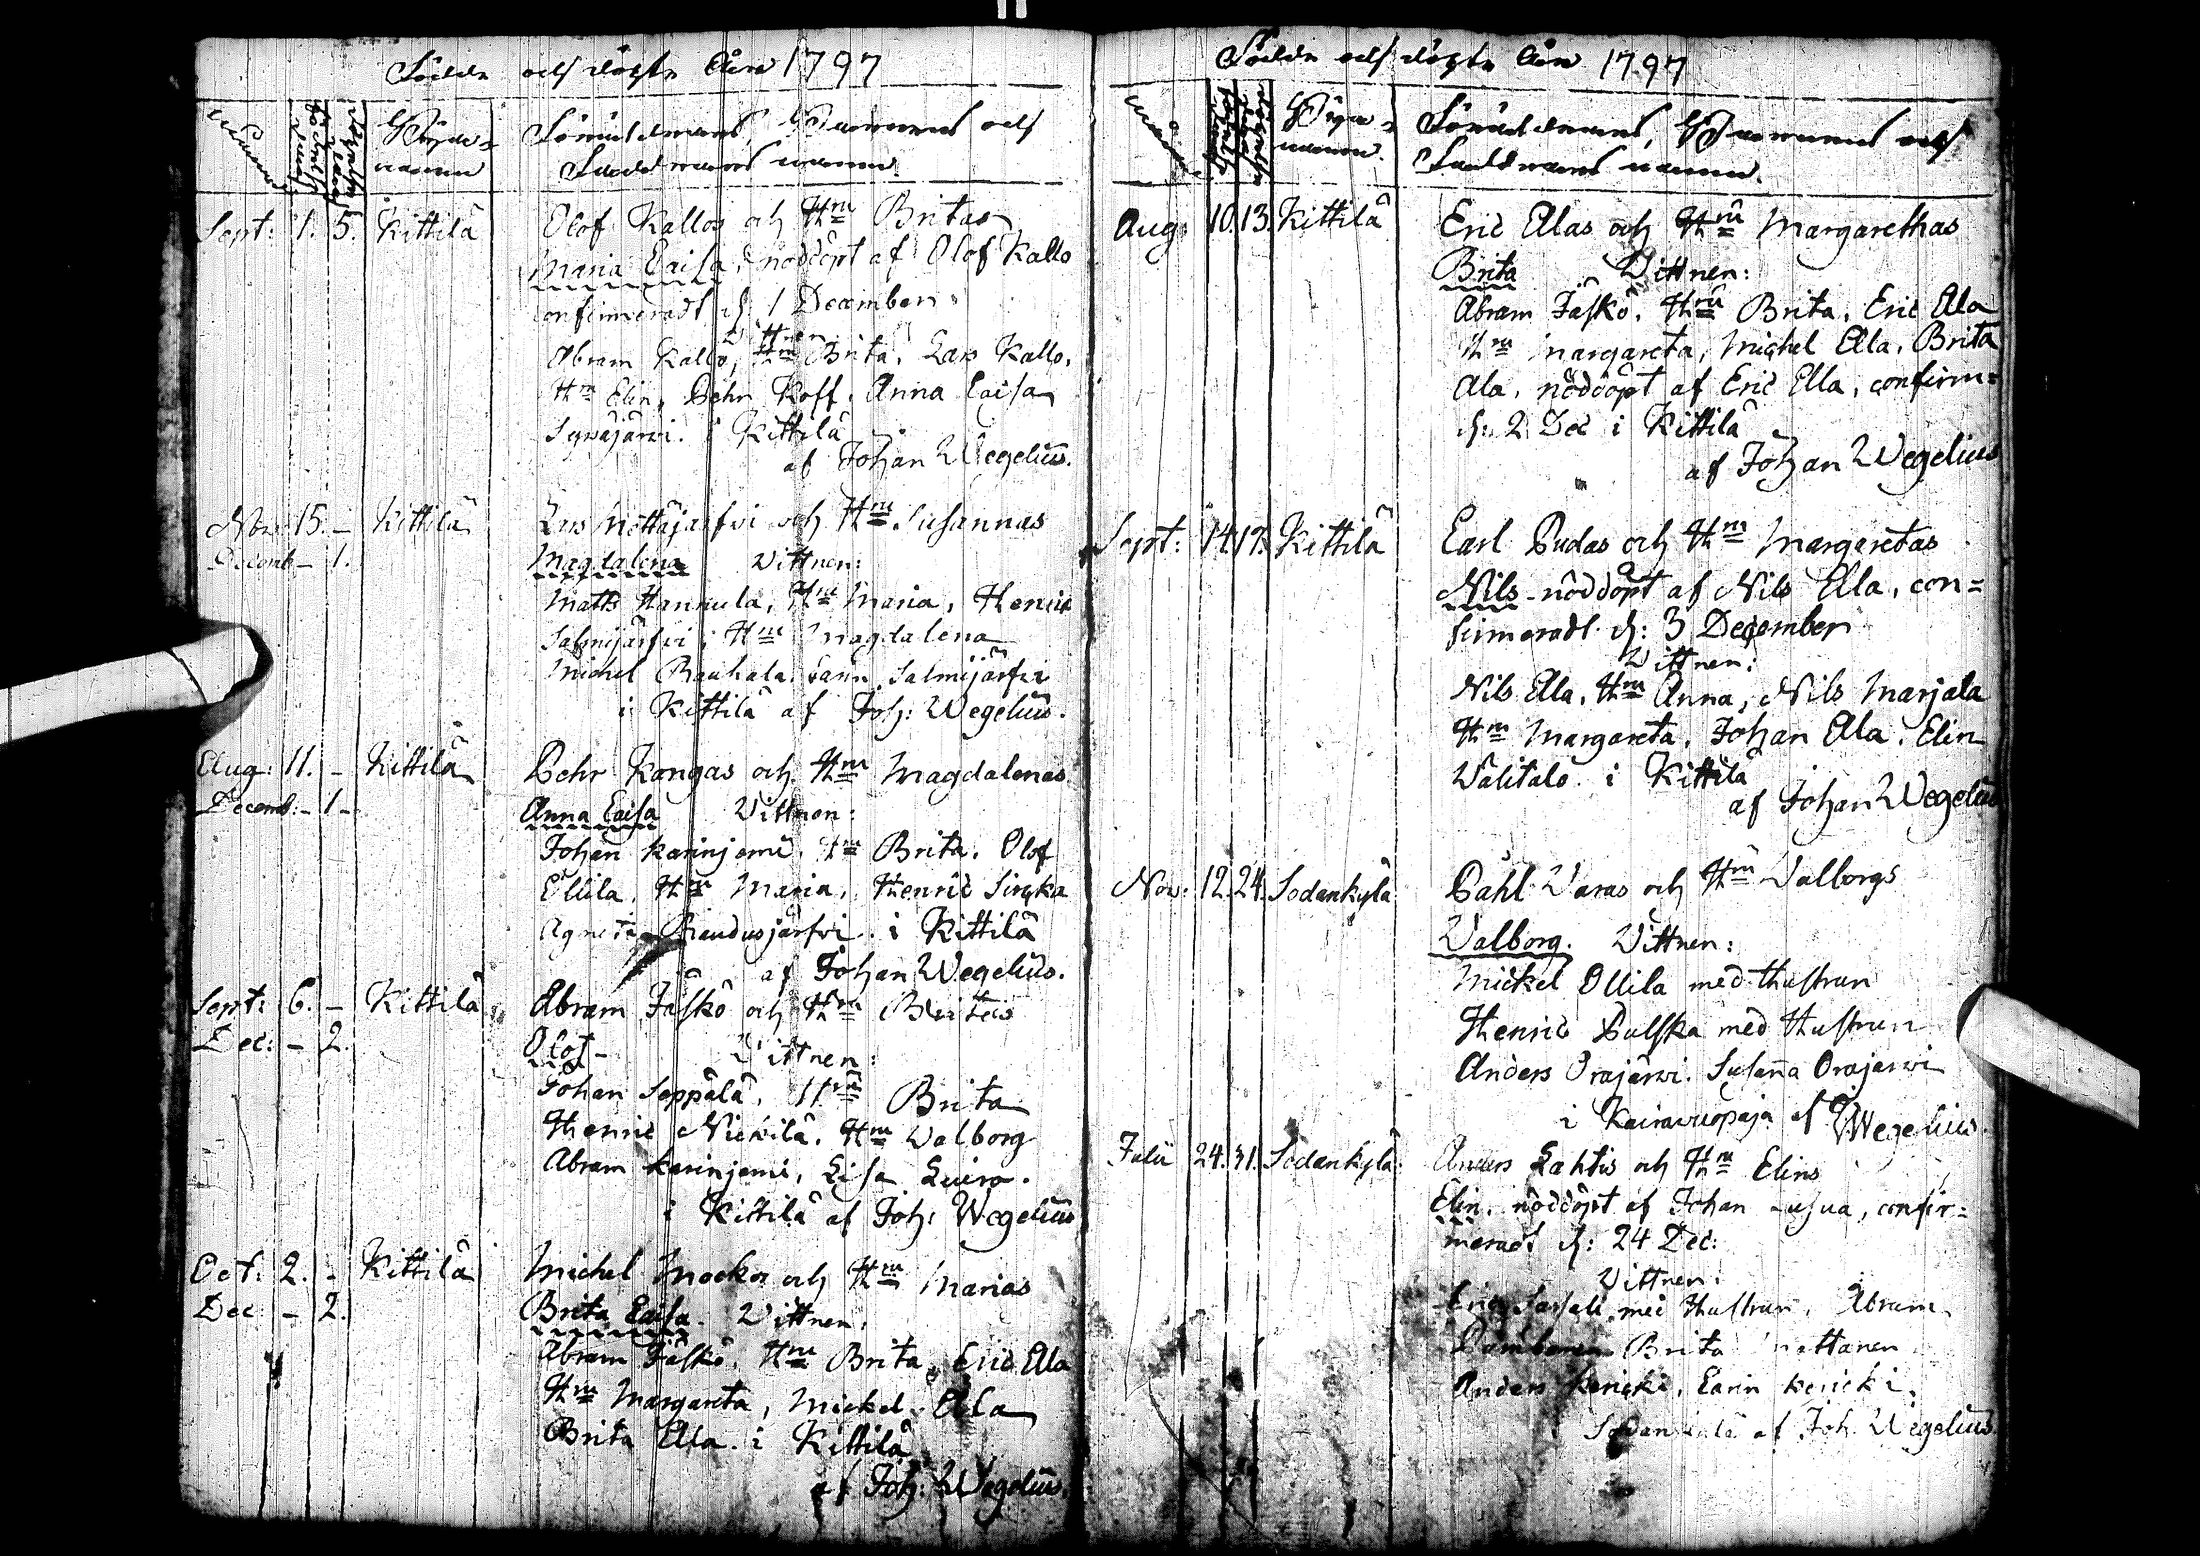 Födde och döpte åhr 1797
Månad
Byars namn
Föräldrarnes, Barnens och
Faddrarnes namn
Sept: 1. 5. Kittilä Olof Kallos och Hru Britas
Maria Caisa, nöddöpt af Olof Kallo
confirmeradt d: 1 December
Vittnen
Abram Kallo, Hru Brita, Lars Kallo,
Hru Elin, Pehr Koff. Anna Caisa
Syväjärvi. i Kittilä
af Johan Wegelius.
Nov: 15. - Kittilä Lars Nottajärfvi och Hru Susannas
Decemb - 1. Magdalena Vittnen:
Matts Hannula, Hru Maria, Henric
Salmijärfvi, Hru Magdalena
Michel Rauhala. Salmijärfvi
i Kittilä af Joh: Wegelius.
Aug: 11. - Kittilä Pehr Kangas och Hru Magdalenas
Decemb: - 1 - Anna Caisa Vittnen:
Johan Karinjemi. Hru Brita. Olof
Ollila, Hru Maria, Henric Sircka
Agneta Raudusjärfvi. i Kittilä
af Johan Wegelius.
Sept: 6. - Kittilä Abram Jäskö och Hru Britas
Dec: - 2. Olof - Vittnen:
Johan Seppälä, Hru Brita
Henric Nickilä. Hru Walborg
Abram Karinjemi, Lisa Luiro.
i Kittilä af Joh: Wegelius
Oct: 2. - Kittilä Michel Mockos och Hru Marias
Dec - 2. Brita Caisa. Vittnen:
Abram Jäskö. Hru Brita, Eric Ella
Hru Margareta, Mickel Ella
Brita Ella. i Kittilä
af Joh: Wegelius.
Födde och döpte åhr 1797
Månad
Byars namn.
Föräldrarnes, Barnens och
Faddrarnes namn.
Aug: 10. 13. Kittilä Eric Elas och Hru Margarethas
Brita Vittnen:
Abram Jäskö. Hru Brita. Eric Ela
Hru Margareta, Michel Ella. Brita
Ala, nöddöpt af Eric Ella, confirm=
d: 2 Dec i Kittilä
af Johan Wegelius
Sept: 14. 17. Kittilä Carl Pudas och Hru Margaretas
Nils - nöddöpt af Nils Ella, con=
firmeradt d: 3 December
Vittnen:
Nils Ella, Hru Anna, Nils Marjala
Hru Margareta, Johan Ella. Elin
Wälitalo. i Kittilä
af Johan Wegelius
Nov: 12. 24. Sodankylä Påhl Waras och Hru Walborgs
Valborg. Vittnen:
Mickel Ollila med Hustrun
Henric Pulska med Hustrun
Anders Orajärvi. Susana Orajärvi
i Kairavuopaja af Wegelius.
Julii 24. 31. Sodankylä: Anders Lahtis och Hru Elins
Elin. nöddöpt af Johan confir=
meradt d: 24 Dec:
Vittnen:
Eric med Hustrun, Abram
Brita
Anders Kericki, Carin Kericki,
Sodankylä af Joh Wegelius